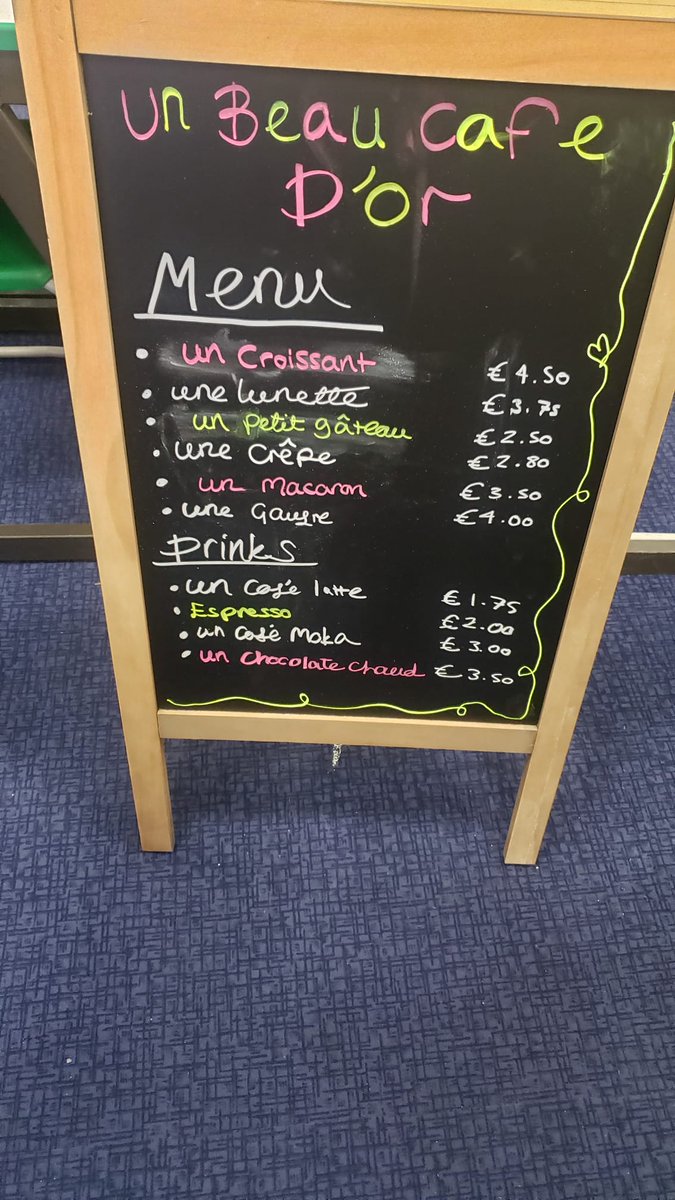 Un Beau cafe
D'or
Menu
un Croissant €4.50
une lunette €3.75
un petit gâteau €2.50
une Crêpe €2.80
un Macaron €3.50
une Gaufre €4.00
Drinks
un Café latte €1.75
Espresso €2.00
un Café Moka €3.00
un Chocolate Chaud €3.50